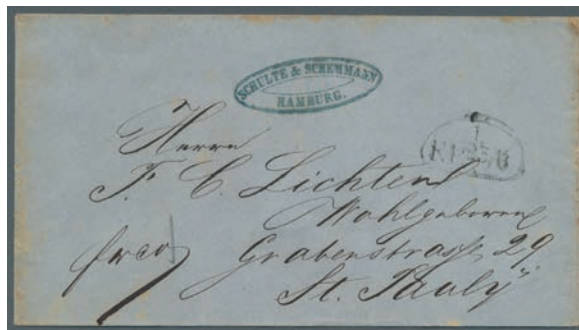 SCHULTE & SCHEMMANN
HAMBURG.
Herrn
F. C. Lichten
Wohlgeboren
Grabenstrasse 29
frco
St. Pauly